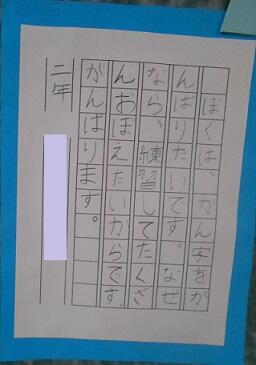 ぼくは、かん字をが
んばりたいです。なぜ
なら、練習してたくさ
んおぼえたいからです。
がんばります。
二年